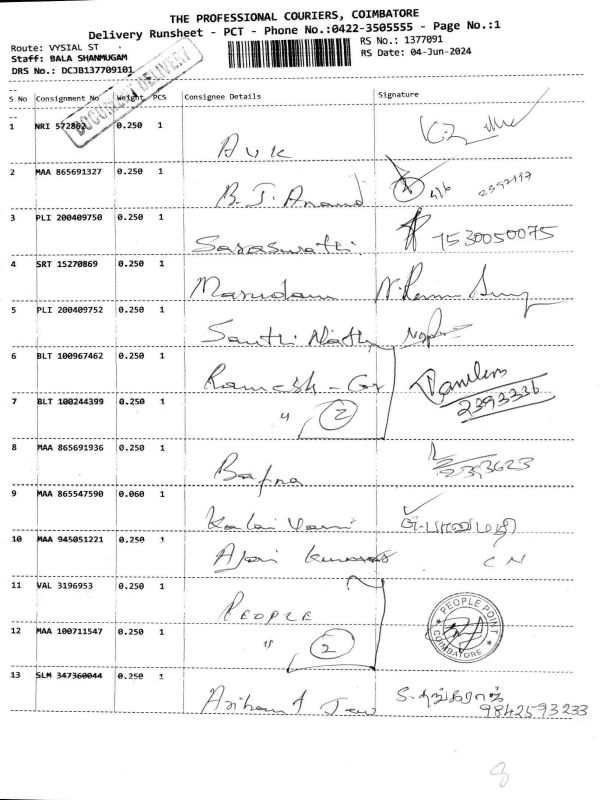 THE PROFESSIONAL COURIERS, COIMBATORE
Delivery Runsheet - PCT - Phone No.:0422-3505555 - Page No.:1
Route: VYSIAL ST
RS No.: 1377091
Staff: BALA SHANMUGAM
RS Date: 04-Jun-2024
DRS No.: DCJB137709101
DOCUMENT DELIVERY
S No Consignment No Weight PCS Consignee Details Signature
1 NRI 572862 0.250 1 AVK
2 MAA 865691327 0.250 1 B.J. Anand 4/6 2392197
3 PLI 200409750 0.250 1 Saraswathi 7530050075
4 SRT 15270869 0.250 1 Marudam
5 PLI 200409752 0.250 1 Santhi Nathy
6 BLT 100967462 0.250 1 Ramesh - Gr
2393336
7 BLT 100244399 0.250 1 " 2
8 MAA 865691936 0.250 1 Bafna 2393623
9 MAA 865547590 0.060 1 Kalai Vani
10 MAA 945051221 0.250 1 Ajai Kumar CN
11 VAL 3196953 0.250 1 PEOPLE
PEOPLE POINT
COIMBATORE
12 MAA 100711547 0.250 1 " 2
13 SLM 347360044 0.250 1 Arihant Jew S. தங்கராஜ்
9842593233
8